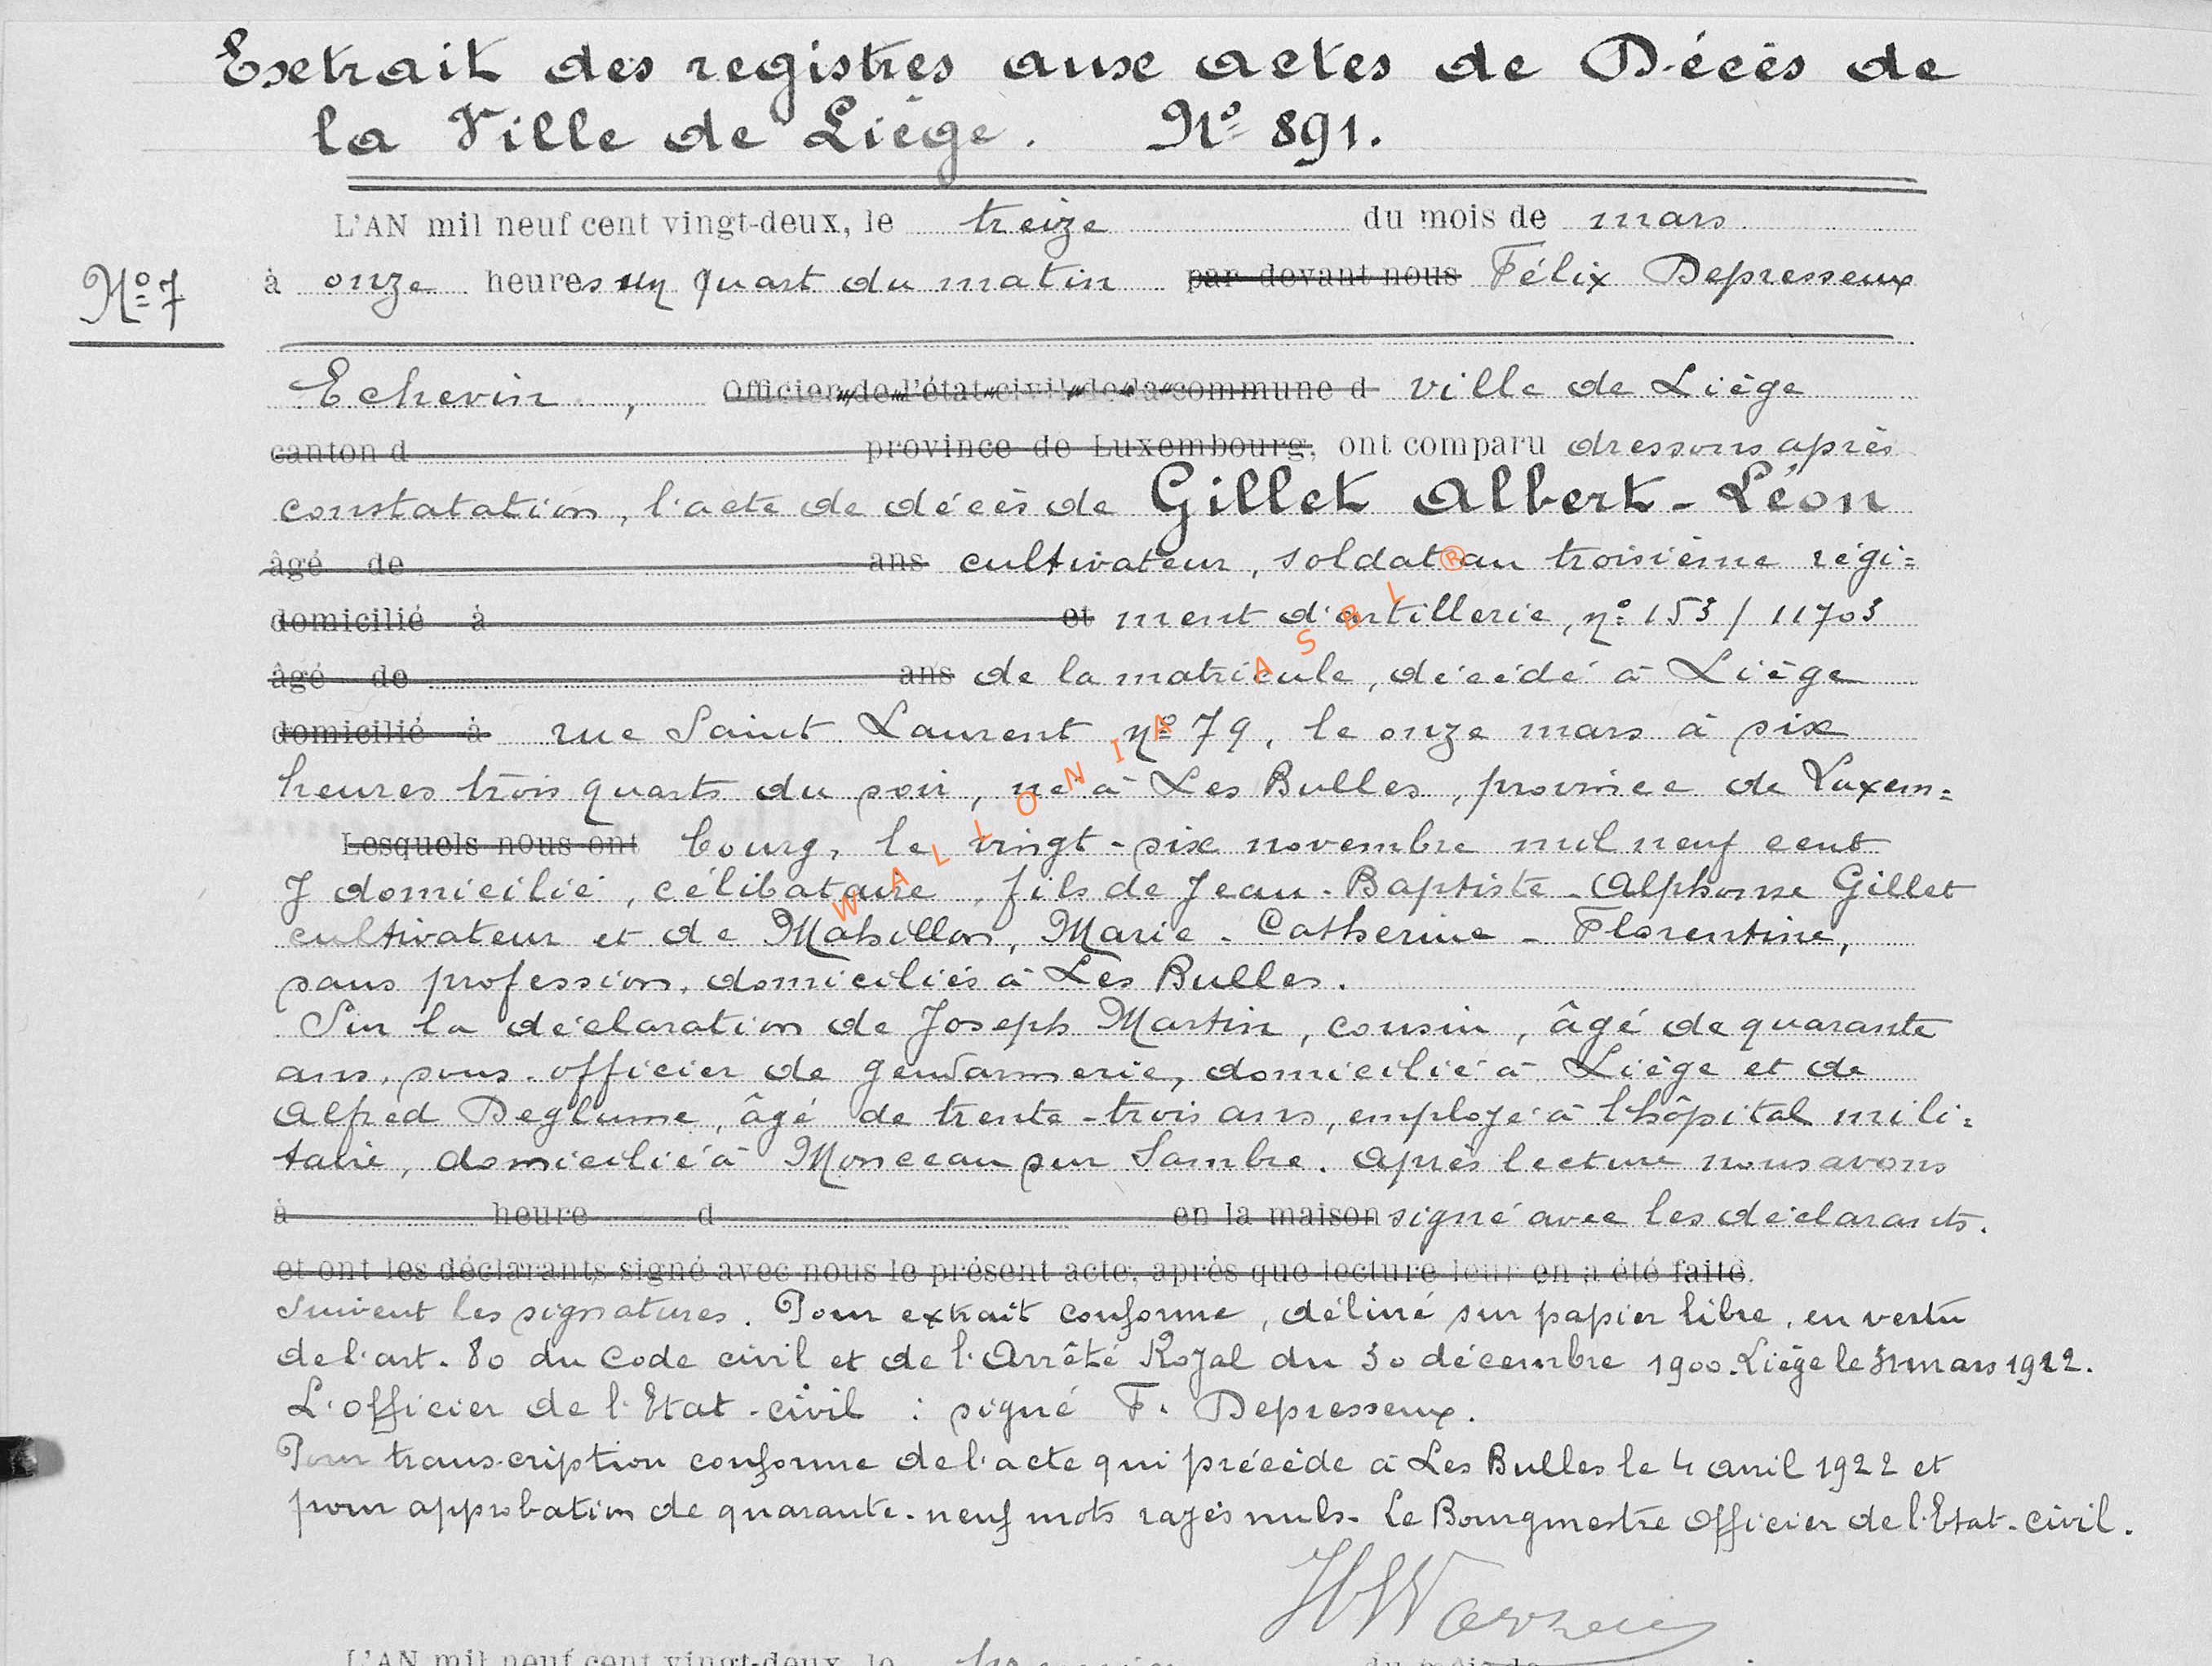 Extrait des registres aux actes de Décès de
la Ville de Liège. Nº 891.
L'AN mil neuf cent vingt-deux, le treize du mois de mars
Nº 7
à onze heures un quart du matin par devant nous Félix Depresseux
Echevin, Officier de l'état civil de la commune d ville de Liège
canton d province de Luxembourg, ont comparu dressons après
constatation, l'acte de décès de Gillet Albert-Léon
âgé de ans cultivateur, soldat au troisième régi=
domicilié à et ment d'artillerie, nº 153/11703
âgé de ans de la matricule, décédé à Liège
domicilié à rue Saint Laurent nº 79, le onze mars à six
heures trois quarts du soir, né à Les Bulles, province de Luxem=
Lesquels nous ont bourg, le vingt-six novembre mil neuf cent
y domicilié, célibataire, fils de Jean-Baptiste-Alphonse Gillet
cultivateur et de Mahillon, Marie-Catherine-Florentine,
sans profession, domiciliés à Les Bulles.
Sur la déclaration de Joseph Martin, cousin, âgé de quarante
ans, sous-officier de gendarmerie, domicilié à Liège et de
Alfred Deglume, âgé de trente-trois ans, employé à l'hôpital mili=
taire, domicilié à Monceau sur Sambre. Après lecture nous avons
à heure d en la maison signé avec les déclarants.
et ont les déclarants signé avec nous le présent acte, après que lecture leur en a été faite.
Suivent les signatures. Pour extrait conforme, délivré sur papier libre, en vertu
de l'art. 80 du Code civil et de l'Arrêté Royal du 30 décembre 1900. Liège le 31 mars 1922.
L'officier de l'Etat-civil : signé F. Depresseux.
Pour transcription conforme de l'acte qui précède à Les Bulles le 4 avril 1922 et
pour approbation de quarante-neuf mots rayés nuls. Le Bourgmestre Officier de l'Etat-civil.
L'AN mil neuf cent vingt-deux, le du mois de
WALLONIA ASBL ®